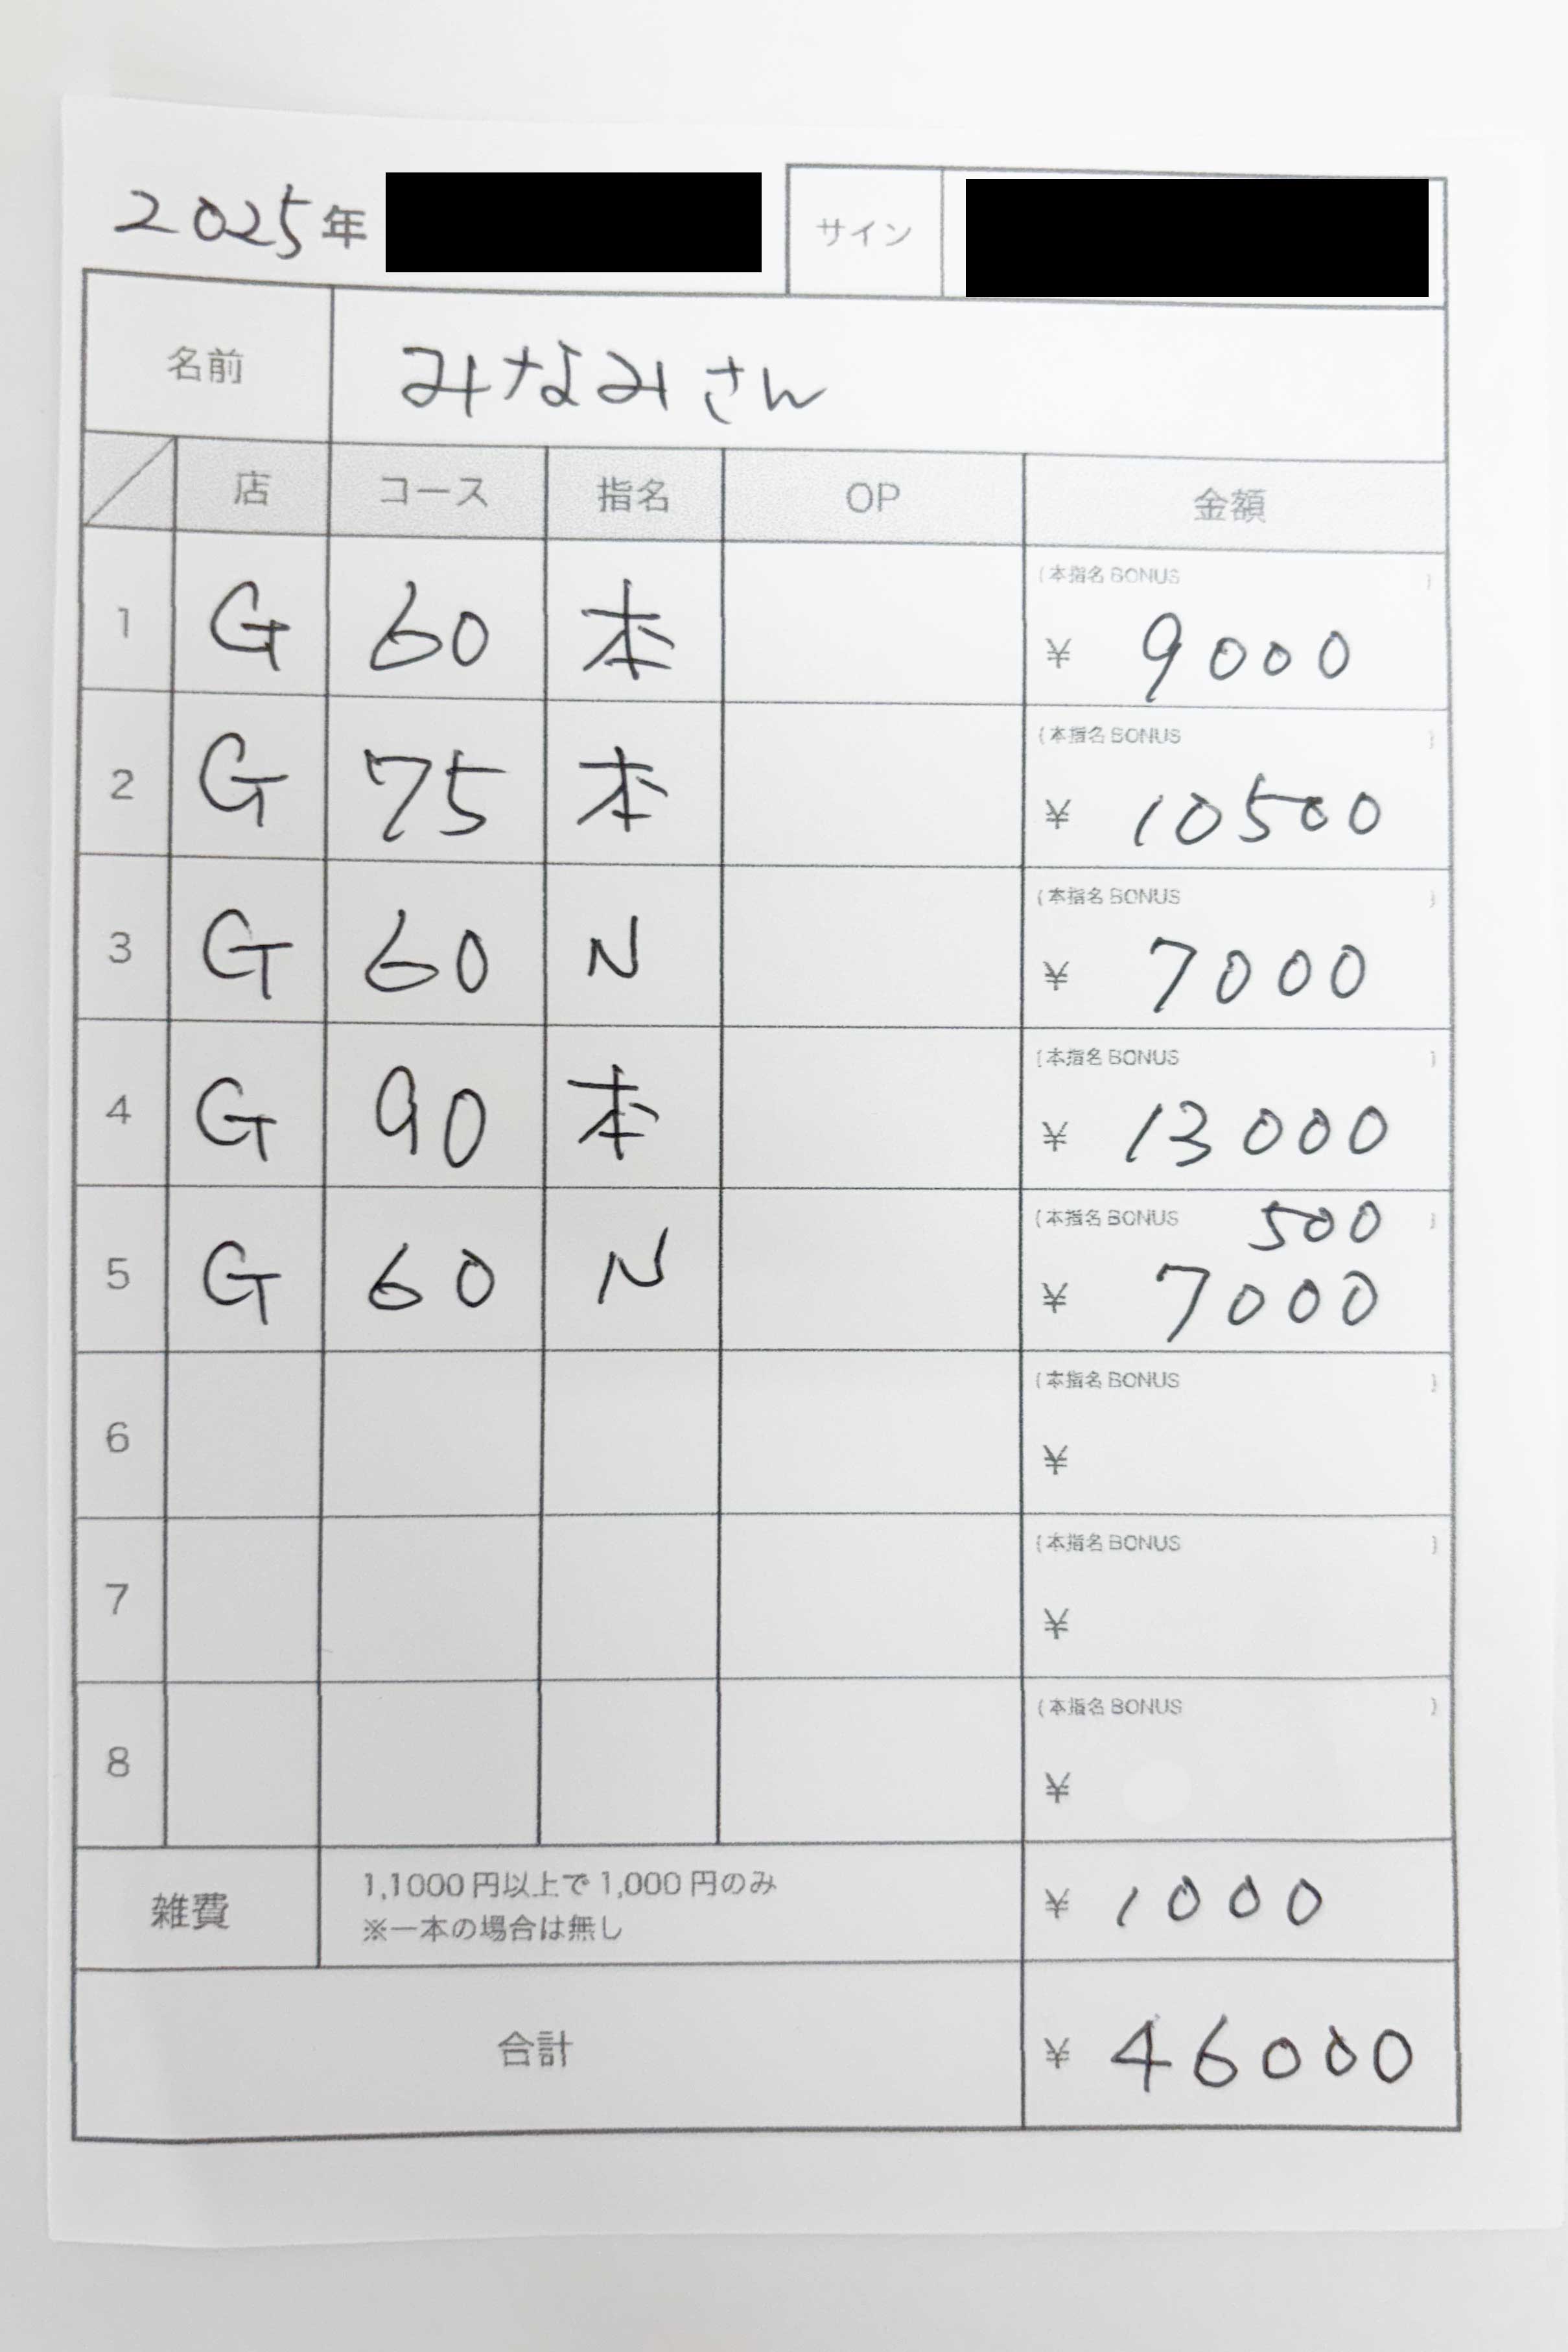 2025年
サイン
名前 みなみさん
店 コース 指名 OP 金額
1 G 60 本 (本指名BONUS )
¥ 9000
2 G 75 本 (本指名BONUS )
¥ 10500
3 G 60 N (本指名BONUS )
¥ 7000
4 G 90 本 (本指名BONUS )
¥ 13000
5 G 60 N (本指名BONUS 500 )
¥ 7000
6 (本指名BONUS )
¥
7 (本指名BONUS )
¥
8 (本指名BONUS )
¥
雑費 1,1000円以上で1,000円のみ ¥ 1000
※一本の場合は無し
合計 ¥ 46000